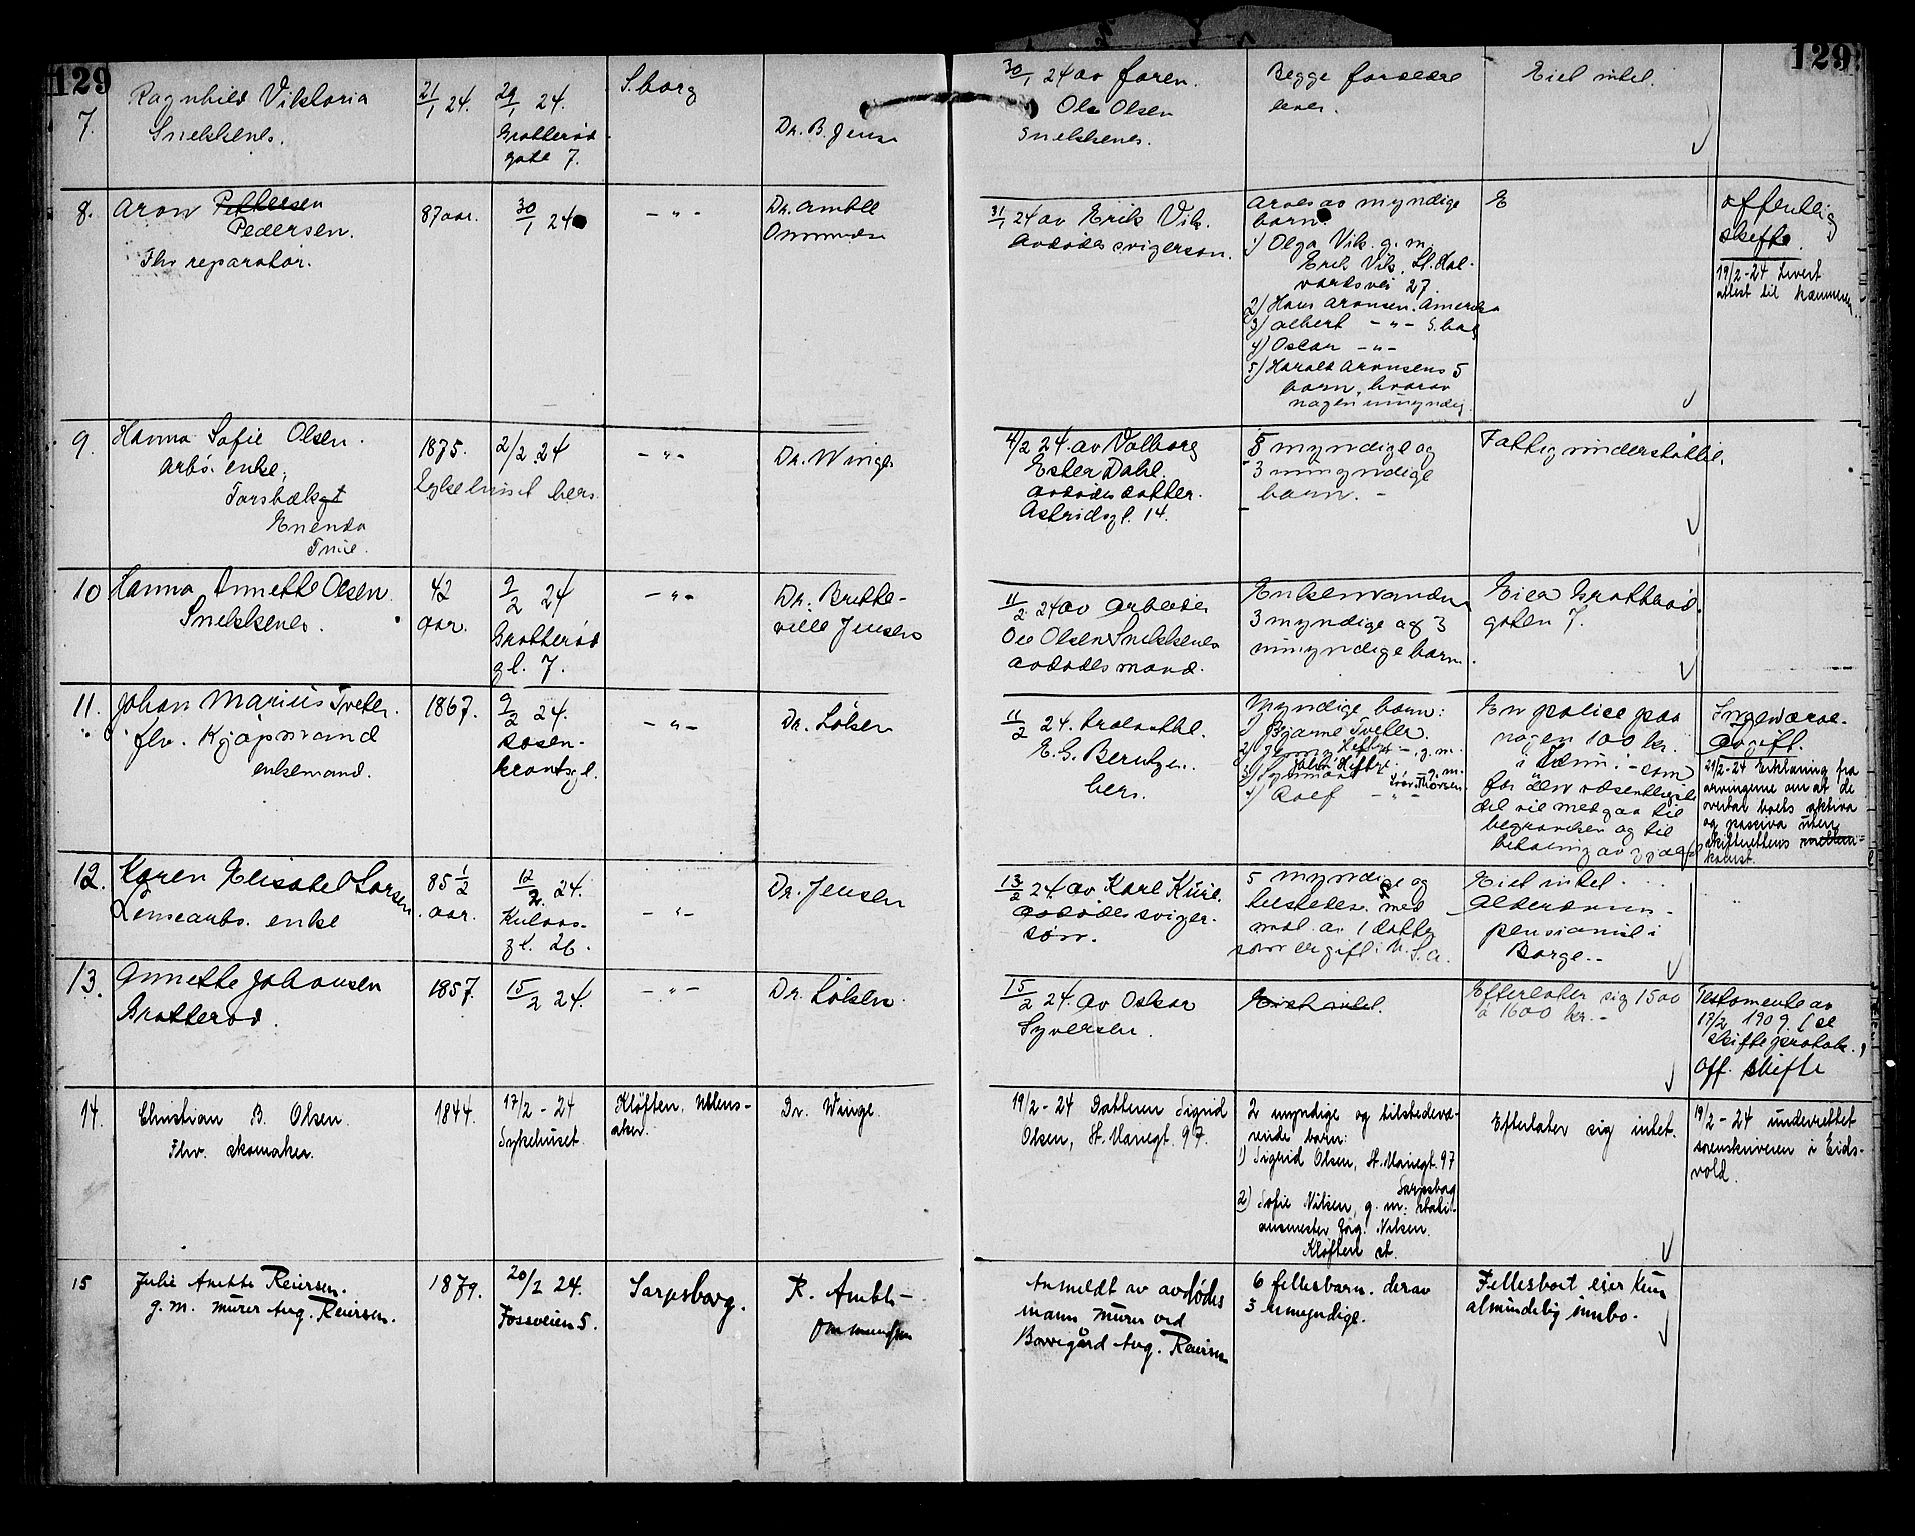 129
129
7.
Ragnhild Viktoria
Snekkenes.
21/1 24.
29/1 24.
Brotterød
gate 7.
S.borg
Dr. B. Jensen
30/1 24 av faren.
Ole Olsen
Snekkenes.
Begge forældre
lever.
Eiet intet.
8.
Aron Pettersen
Pedersen.
Fhv reparatør.
87 aar.
30/1 24
- " -
Dr. Amble
Ommundsen
31/1 24 av Erik Vik.
avdødes svigersøn.
Arves av myndige
barn.
1) Olga Vik g. m.
Erik Vik, St. Hal-
vardsvei 27.
2) Hans Aronsen. Amerika
3) Albert - " - S.borg
4) Oscar - " -
5) Harald Aronsens 5
barn, hvorav
nogen umyndig.
E
Offentlig
skifte.
19/2-24 Levert
attest til kæmneren
9.
Hanna Sofie Olsen.
arb. enke,
Torsbækgt
Enenda
Tune.
1875.
2/2 24
Sykehuset hers.
- " -
Dr. Winge
4/2 24. av Valborg
Ester Dahl.
avdødes datter.
Astridsgt. 14.
5 myndige og
3 umyndige
barn. -
Fattigunderstøttet.
10
Hanna Annette Olsen
Snekkenes.
42
aar.
9/2 24
Brotterød
gt. 7.
- " -
Dr. Brette-
ville Jensen
11/2 24 av arbeider
Ole Olsen Snekkenes
avdødes mand.
Enkemanden
3 myndige og 3
umyndige barn.
Eier Brotterød
gaten 7.
11.
Johan Marius Tveter.
fhv. Kjøpmand
enkemand.
1867.
9/2 24.
Rosen-
krantzgt.
- " -
Dr. Lølsen
11/2 24.
E. G. Berntzen.
hers.
Myndige barn:
1) Bjarne Tveter.
4) Rolf - " -
En police paa
nogen 100 kr.
i Idun. - som
for den væsentligste
del vil medgaa til
begravelsen og til
betaling av gjæld
Ingen arve-
avgift.
21/2-24 Erklæring fra
arvingerne om at de
overtar boets aktiva
og passiva uten
skifterettens mellem-
komst.
12.
Karen Elisabet Larsen
Lenseарb. enke
85 1/2
aar.
12/2 24.
Kulaas-
gt. 26.
- " -
Dr. Jensen
13/2 24 av Karl Kure.
avdødes sviger-
søn.
5 myndige og
tilstedev. med
undt. av 1 datter
som er gift i U. S. A.
Eiet intet.
Alderdoms-
pensionist i
Borge. -
13.
Annette Johansen
Brotterød.
1857.
15/2 24.
- " -
Dr. Lølsen.
15/2 24. av Oskar
Syversen.
Eiet intet.
Efterlater sig 1500
à 1600 kr. -
Testamente av
17/2 1909. (se
skifteprotok.)
Off. skifte
14.
Christian B. Olsen.
Fhv. skomaker.
1844.
17/2 - 24
Sykehuset.
Kløften, Ullens-
aker.
Dr. Winge.
19/2 - 24 Datteren Sigrid
Olsen, St. Mariegt. 97.
2 myndige og tilstedevæ-
rende barn:
1) Sigrid Olsen, St. Mariegt. 97
Sarpsborg
2) Sofie Nilsen, g. m. stati-
onsmester Jørg. Nilsen
Kløften st.
Efterlater sig intet.
19/2 - 24 underrettet
sorenskriveren i Eids-
vold.
15
Julie Anette Reiersen.
g. m. murer Aug. Reiersen.
1879.
20/2 24.
Fossveien 5.
Sarpsborg.
R. Amble-
Ommundsen
Anmeldt av avdødes
mann murer ved
Borregård Aug. Reiersen
6 fellesbarn. derav
3 umyndige.
Fellesboet eier kun
almindelig innbo.